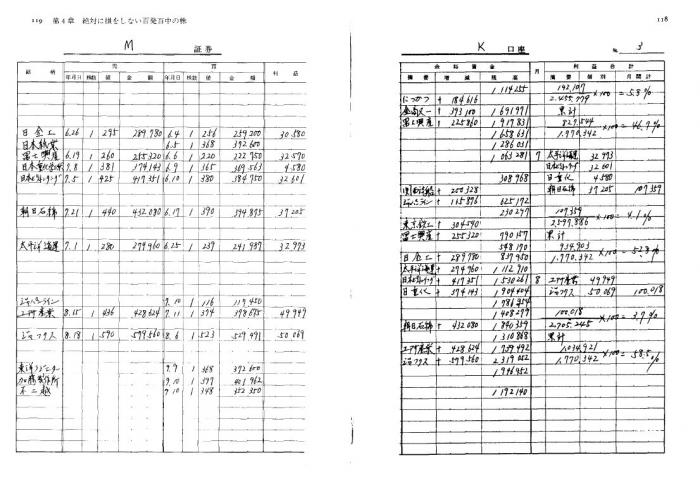 119 第4章 絶対に損をしない百発百中の株
M 証券
売 買
銘柄 年月日 株数 値 金額 年月日 株数 値 金額 利益
日金工 6.26 1 295 289,780 6.4 1 256 259,200 30,580
6.5 1 368 392,600
富士興産 6.19 1 260 255,320 6.6 1 220 222,750 32,570
7.8 1 381 374,143 6.9 1 365 369,563 4,580
7.5 1 425 417,351 6.10 1 380 384,750 32,601
朝日石綿 7.21 1 440 432,080 6.17 1 390 394,875 37,205
太平洋海運 7.1 1 280 274,960 6.25 1 239 241,987 32,973
ジャパンライン 7.10 1 116 117,450
8.15 1 436 428,624 7.11 1 374 378,675 49,949
ジャックス 8.18 1 590 599,560 8.6 1 523 529,491 50,069
9.9 1 368 372,600
加藤製作所 9.10 1 397 401,962
不二越 9.10 1 348 352,350
118
K 口座 № 3
余裕資金 利益合計
摘要 増減 残高 月 摘要 個別 月間計
1,114,255 142,107
にっかつ + 184,616 2,455,779 ×100 = 5.8%
+ 393,100 1,691,971 累計
富士興産 + 225,860 1,917,831
1,658,631 1,770,342 ×100 = 46.7%
1,286,031 2,597,886
1,063,281 7 太平洋海運 32,973
32,601
308,968 日重化 4,580
+ 250,328 朝日石綿 37,205 107,359
ジャパンライン + 165,896 625,192
230,297 107,359
東京鉄工 + 304,540 ×100 = 4.1%
富士興産 + 255,320 790,157 累計
548,170 934,903
日金工 + 289,780 837,950 1,770,342 ×100 = 52.8%
太平洋海運 + 274,960 1,112,910
+ 417,351 1,530,261 8 49,949
日重化 + 374,143 1,904,404 ジャックス 50,069 100,018
1,786,954
1,408,279 100,018
朝日石綿 + 432,080 1,840,359 2,705,245 ×100 = 3.7%
1,310,868 累計
+ 428,624 1,739,492 1,034,921
ジャックス + 599,560 2,319,052 1,770,342 ×100 = 58.5%
1,946,452
1,192,140